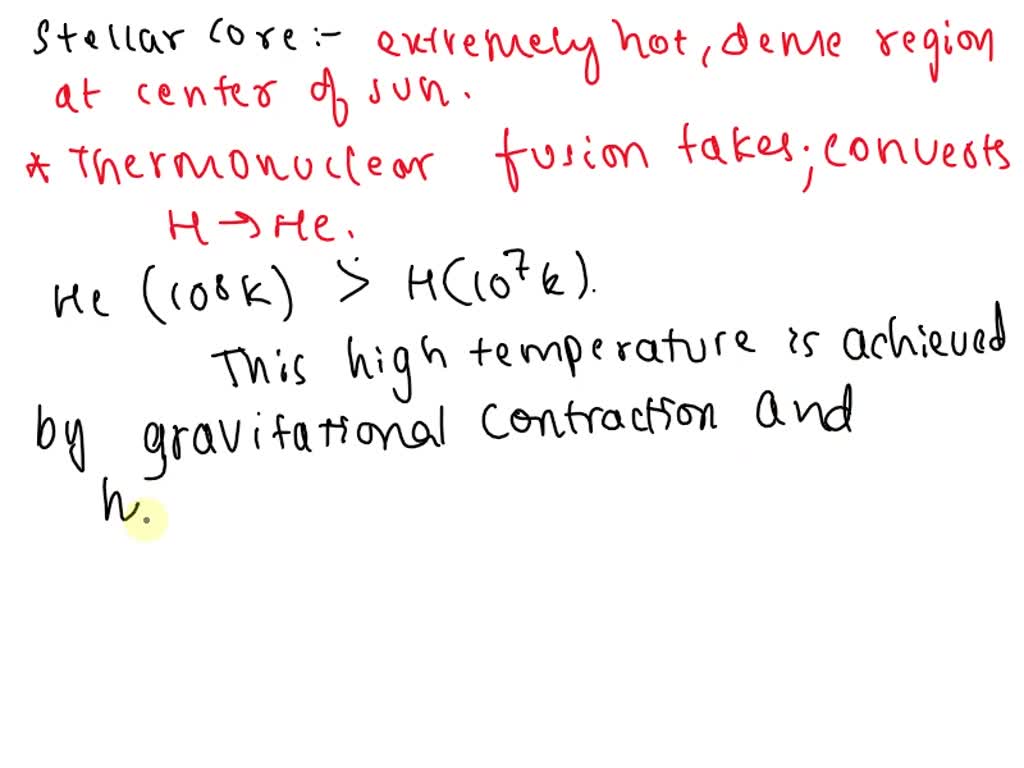 Stellar core :- extremely hot, dense region
at center of sun.
* Thermonuclear fusion takes; converts
H → He.
He (108K) > H(10⁷k).
This high temperature is achieved
by gravitational contraction and
h